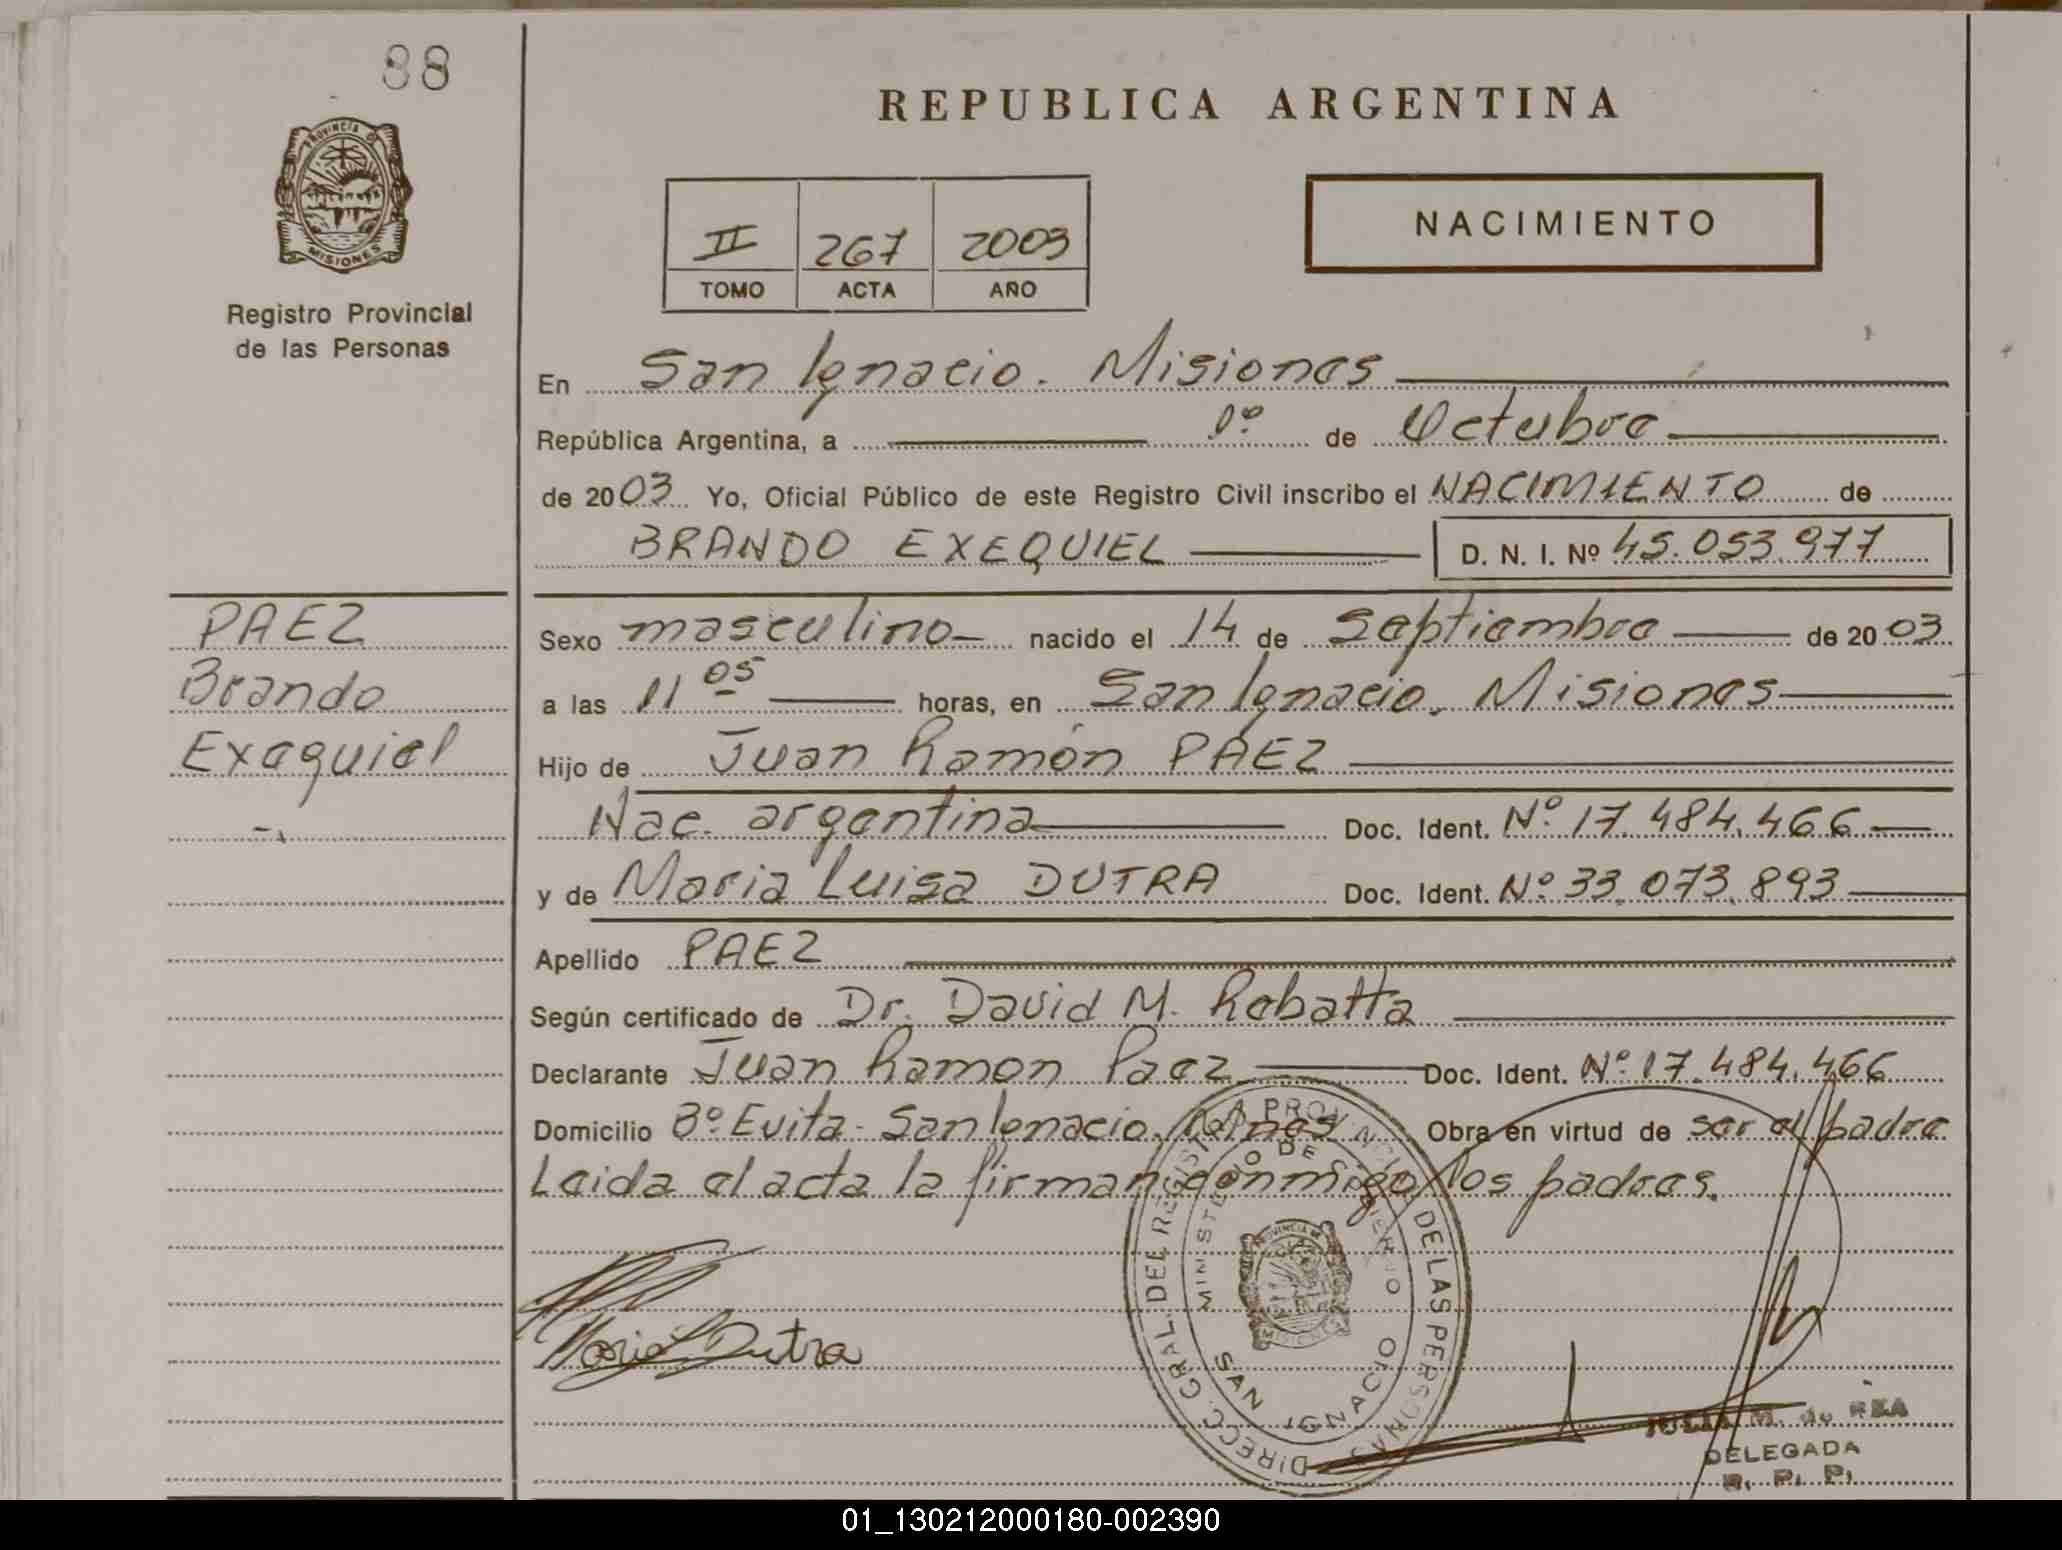 88
PROVINCIA DE
MISIONES
Registro Provincial
de las Personas
PAEZ
Brando
Exequiel
REPUBLICA ARGENTINA
II 267 2003
TOMO ACTA AÑO
NACIMIENTO
En San Ignacio. Misiones
República Argentina, a 1º de Octubre
de 2003 Yo, Oficial Público de este Registro Civil inscribo el NACIMIENTO de
BRANDO EXEQUIEL D. N. I. Nº 45.053.977
Sexo masculino nacido el 14 de Septiembre de 2003
a las 11 05 horas, en San Ignacio. Misiones
Hijo de Juan Ramón PAEZ
Nac. argentina Doc. Ident. Nº 17.484.466
y de Maria Luisa DUTRA Doc. Ident. Nº 33.073.893
Apellido PAEZ
Según certificado de Dr. David M. Rebatta
Declarante Juan Ramon Paez Doc. Ident. Nº 17.484.466
Domicilio Bº Evita - San Ignacio. Mnes Obra en virtud de ser el padre
Leida el acta la firman conmigo los padres.
Maria L Dutra
DIRECC. GRAL. DEL REGISTRO PROVINCIAL DE LAS PERSONAS
MINISTERIO DE GOBIERNO
PROVINCIA DE
MISIONES
SAN IGNACIO
JULIA M. de REA
DELEGADA
R. P. P.
01_130212000180-002390